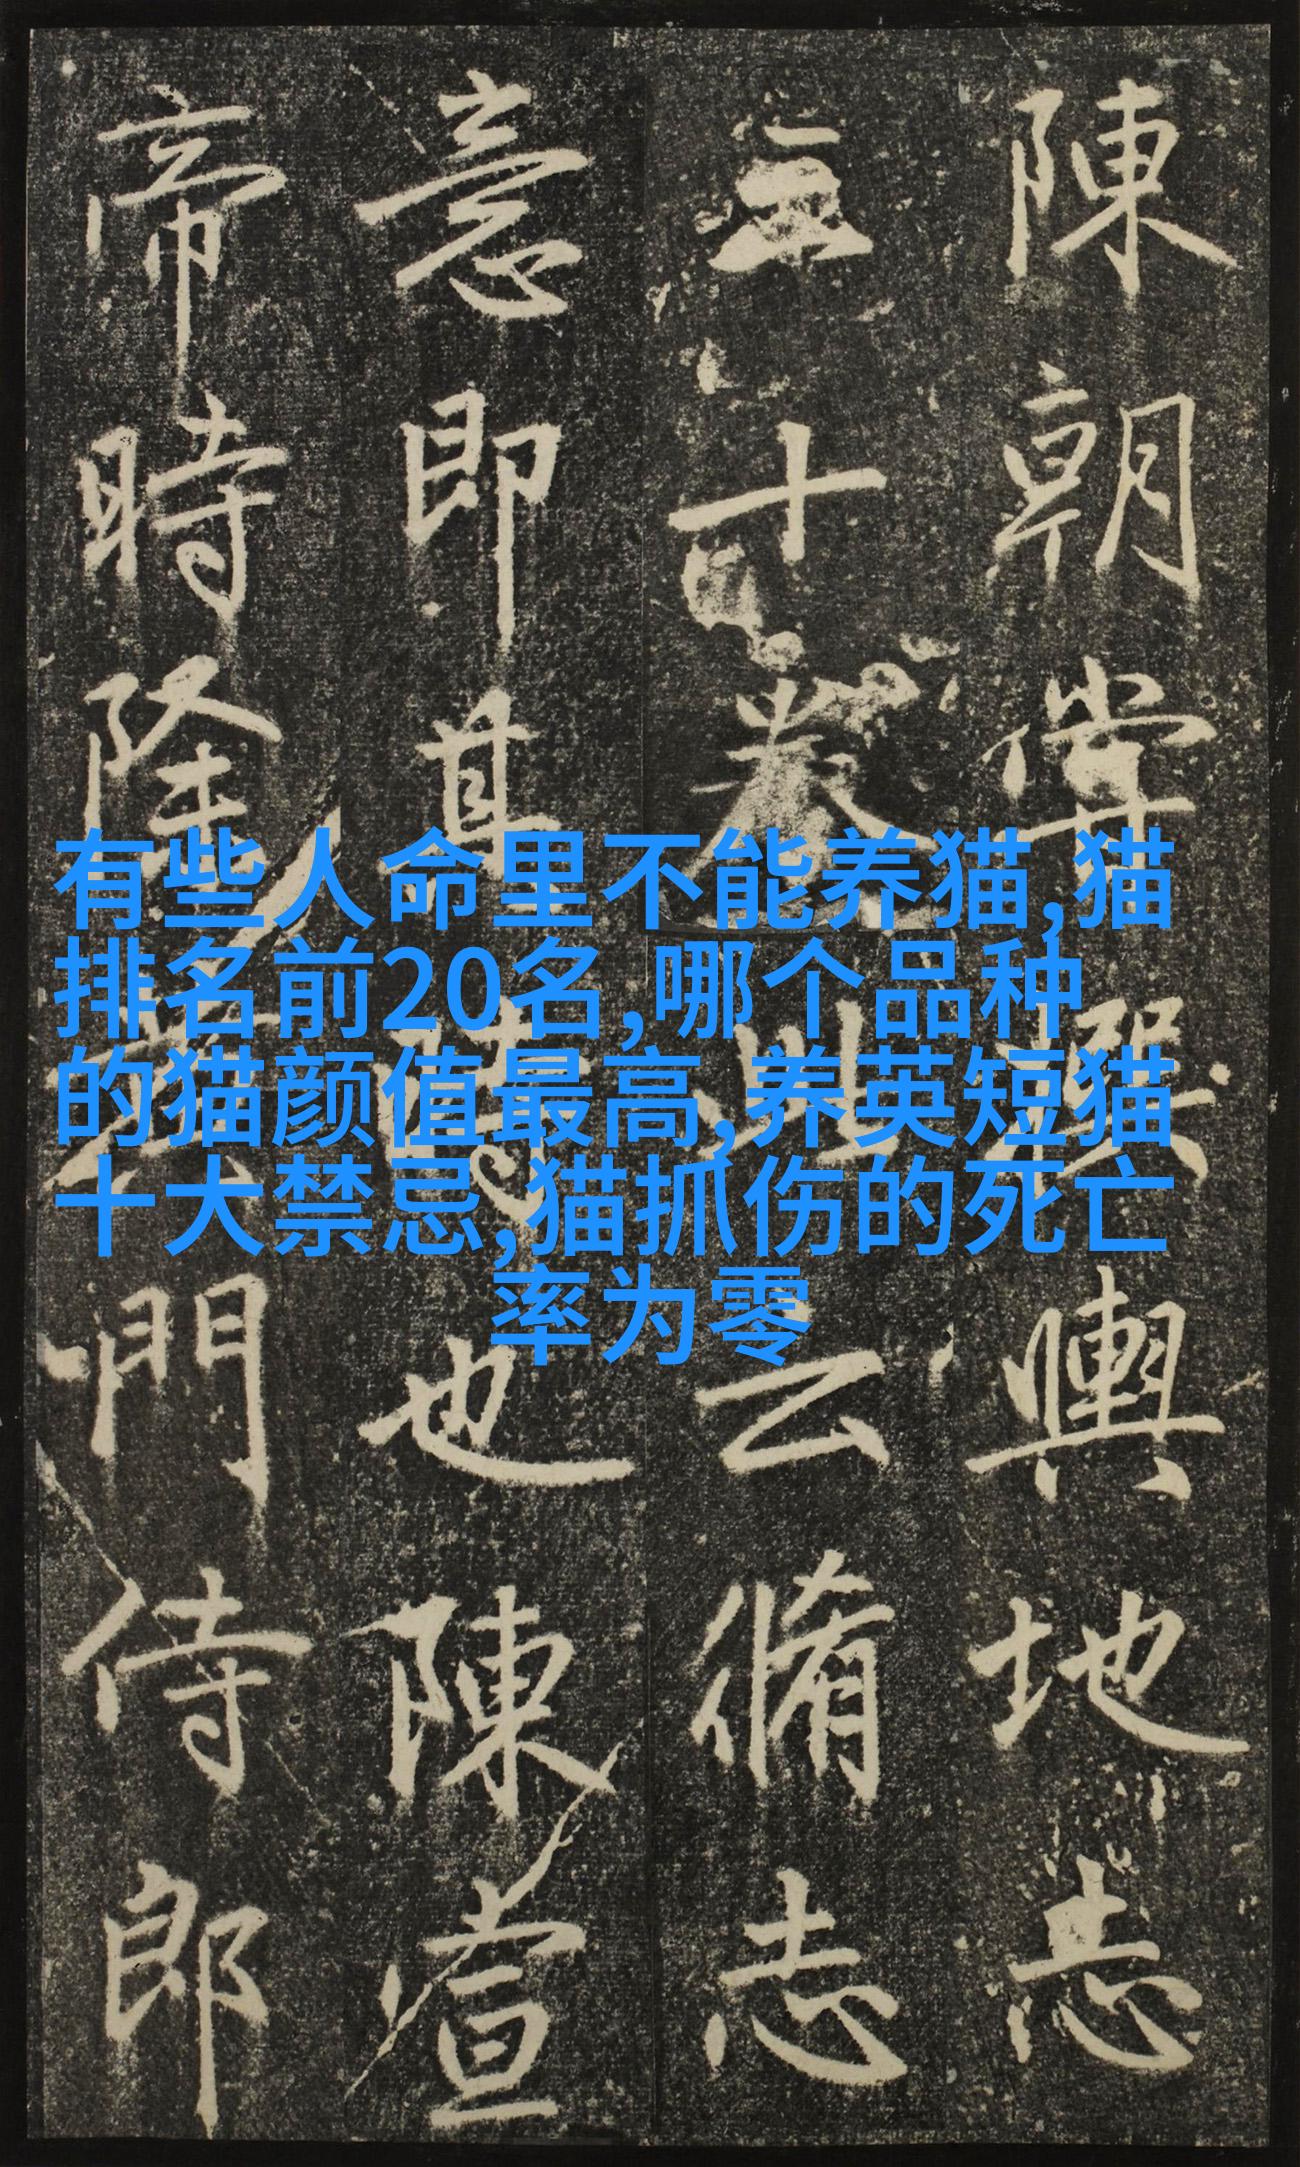 有些人命里不能养猫,猫
排名前20名,哪个品种
的猫颜值最高,养英短猫
十大禁忌,猫抓伤的死亡
率为零
陳朝嘗撰輿地志
三十卷此云脩志
意即其也陳宣
帝時門侍郎